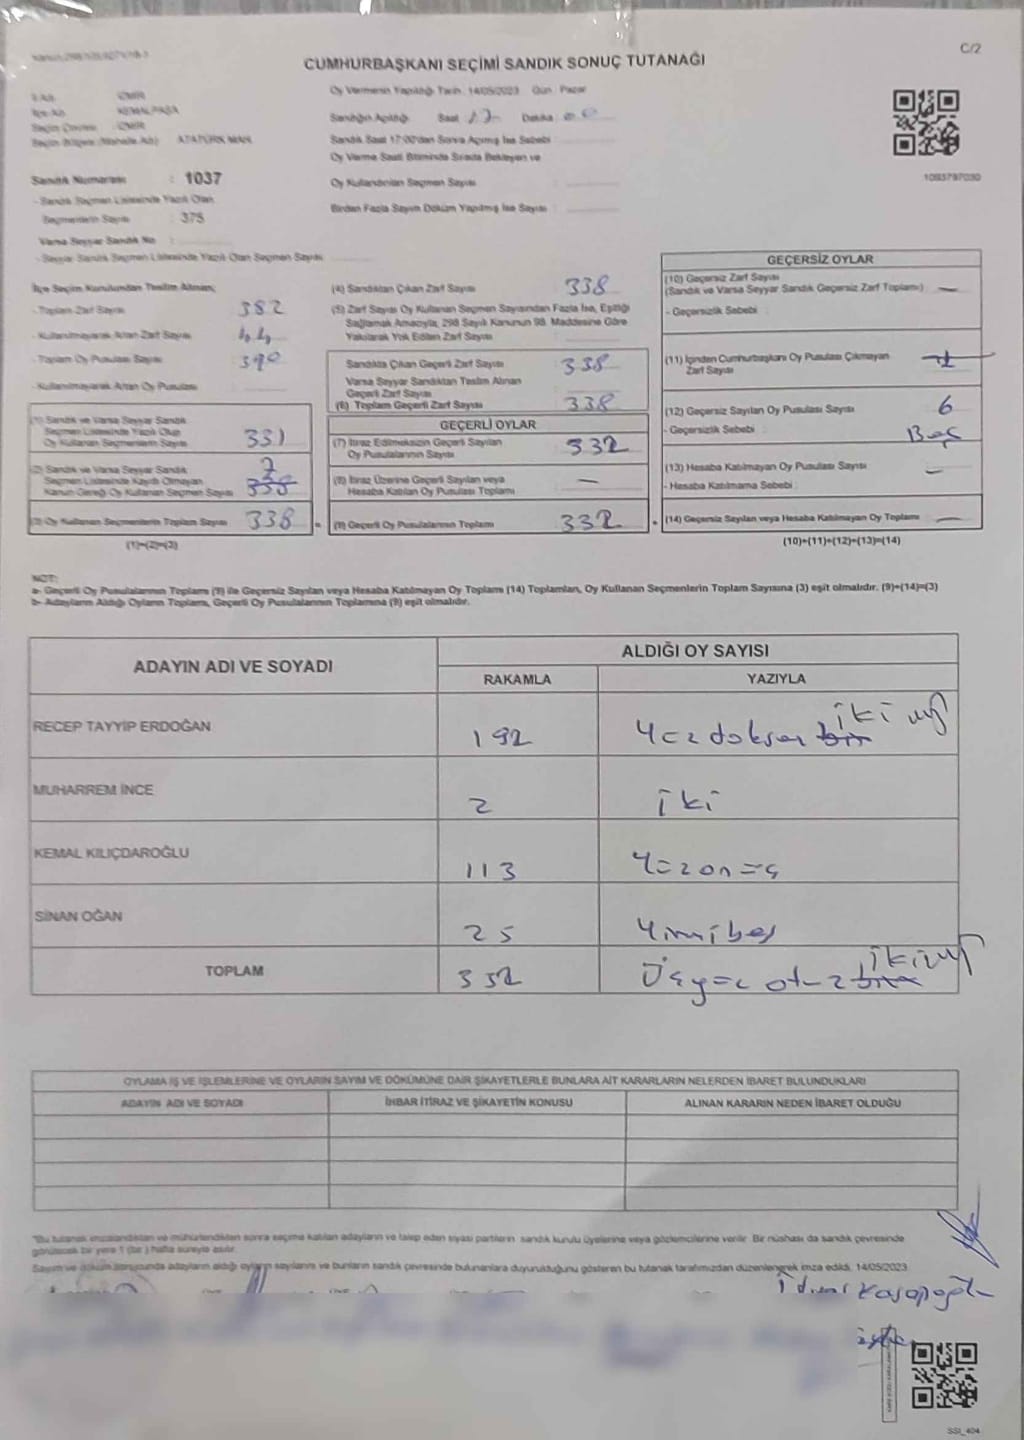 C/2
CUMHURBAŞKANI SEÇİMİ SANDIK SONUÇ TUTANAĞI
İl Adı : İZMİR
İlçe Adı : KEMALPAŞA
Seçim Çevresi : İZMİR
Seçim Bölgesi (Mahalle Adı) : ATATÜRK MAH.
Oy Vermenin Yapıldığı Tarih : 14/05/2023 Gün : Pazar
Sandığın Açıldığı Saat 17 Dakika 00
Sandık Saat 17:00'den Sonra Açılmış İse Sebebi :
Oy Verme Saati Bitiminde Sırada Bekleyen ve
Oy Kullandırılan Seçmen Sayısı :
Birden Fazla Sayım Döküm Yapılmış İse Sayısı :
1093797030
Sandık Numarası : 1037
- Sandık Seçmen Listesinde Yazılı Olan
Seçmenlerin Sayısı : 375
Varsa Seyyar Sandık No :
- Seyyar Sandık Seçmen Listesinde Yazılı Olan Seçmen Sayısı
İlçe Seçim Kurulundan Teslim Alınan;
- Toplam Zarf Sayısı : 382
- Kullanılmayarak Artan Zarf Sayısı : 44
- Toplam Oy Pusulası Sayısı : 390
- Kullanılmayarak Artan Oy Pusulası :
(1) Sandık ve Varsa Seyyar Sandık
Seçmen Listesinde Yazılı Olup
Oy Kullanan Seçmenlerin Sayısı 331
(2) Sandık ve Varsa Seyyar Sandık
Seçmen Listesinde Kayıtlı Olmayan
Kanun Gereği Oy Kullanan Seçmen Sayısı 7 338
(3) Oy Kullanan Seçmenlerin Toplam Sayısı 338 =
(1)+(2)=(3)
(4) Sandıktan Çıkan Zarf Sayısı : 338
(5) Zarf Sayısı Oy Kullanan Seçmen Sayısından Fazla İse, Eşitliği
Sağlamak Amacıyla, 298 Sayılı Kanunun 98. Maddesine Göre
Yakılarak Yok Edilen Zarf Sayısı :
Sandıkta Çıkan Geçerli Zarf Sayısı : 338
Varsa Seyyar Sandıktan Teslim Alınan
Geçerli Zarf Sayısı :
(6) Toplam Geçerli Zarf Sayısı : 338
GEÇERLİ OYLAR
(7) İtiraz Edilmeksizin Geçerli Sayılan
Oy Pusulalarının Sayısı : 332
(8) İtiraz Üzerine Geçerli Sayılan veya
Hesaba Katılan Oy Pusulası Toplamı : —
(9) Geçerli Oy Pusulalarının Toplamı : 332 +
GEÇERSİZ OYLAR
(10) Geçersiz Zarf Sayısı
(Sandık ve Varsa Seyyar Sandık Geçersiz Zarf Toplamı) : —
- Geçersizlik Sebebi :
(11) İçinden Cumhurbaşkanı Oy Pusulası Çıkmayan
Zarf Sayısı :
(12) Geçersiz Sayılan Oy Pusulası Sayısı : 6
- Geçersizlik Sebebi : Boş
(13) Hesaba Katılmayan Oy Pusulası Sayısı : —
- Hesaba Katılmama Sebebi :
(14) Geçersiz Sayılan veya Hesaba Katılmayan Oy Toplamı : —
(10)+(11)+(12)+(13)=(14)
NOT:
a- Geçerli Oy Pusulalarının Toplamı (9) ile Geçersiz Sayılan veya Hesaba Katılmayan Oy Toplamı (14) Toplamları, Oy Kullanan Seçmenlerin Toplam Sayısına (3) eşit olmalıdır. (9)+(14)=(3)
b- Adayların Aldığı Oyların Toplamı, Geçerli Oy Pusulalarının Toplamına (9) eşit olmalıdır.
ADAYIN ADI VE SOYADI
ALDIĞI OY SAYISI
RAKAMLA YAZIYLA
RECEP TAYYİP ERDOĞAN 192 Yüz doksan bir iki
MUHARREM İNCE 2 iki
KEMAL KILIÇDAROĞLU 113 Yüz on üç
SİNAN OĞAN 25 Yirmi beş
TOPLAM 332 Üçyüz otuz iki
OYLAMA İŞ VE İŞLEMLERİNE VE OYLARIN SAYIM VE DÖKÜMÜNE DAİR ŞİKAYETLERLE BUNLARA AİT KARARLARIN NELERDEN İBARET BULUNDUKLARI
ADAYIN ADI VE SOYADI İHBAR İTİRAZ VE ŞİKAYETİN KONUSU ALINAN KARARIN NEDEN İBARET OLDUĞU
"Bu tutanak imzalandıktan ve mühürlendikten sonra seçime katılan adayların ve talep eden siyasi partilerin sandık kurulu üyelerine veya gözlemcilerine verilir. Bir nüshası da sandık çevresinde
görülecek bir yere 1 (bir) hafta süreyle asılır.
Sayım ve döküm sonucunda adayların aldığı oyların sayılarını ve bunların sandık çevresinde bulunanlara duyurulduğunu gösteren bu tutanak tarafımızdan düzenlenerek imza edildi. 14/05/2023
SSI_404